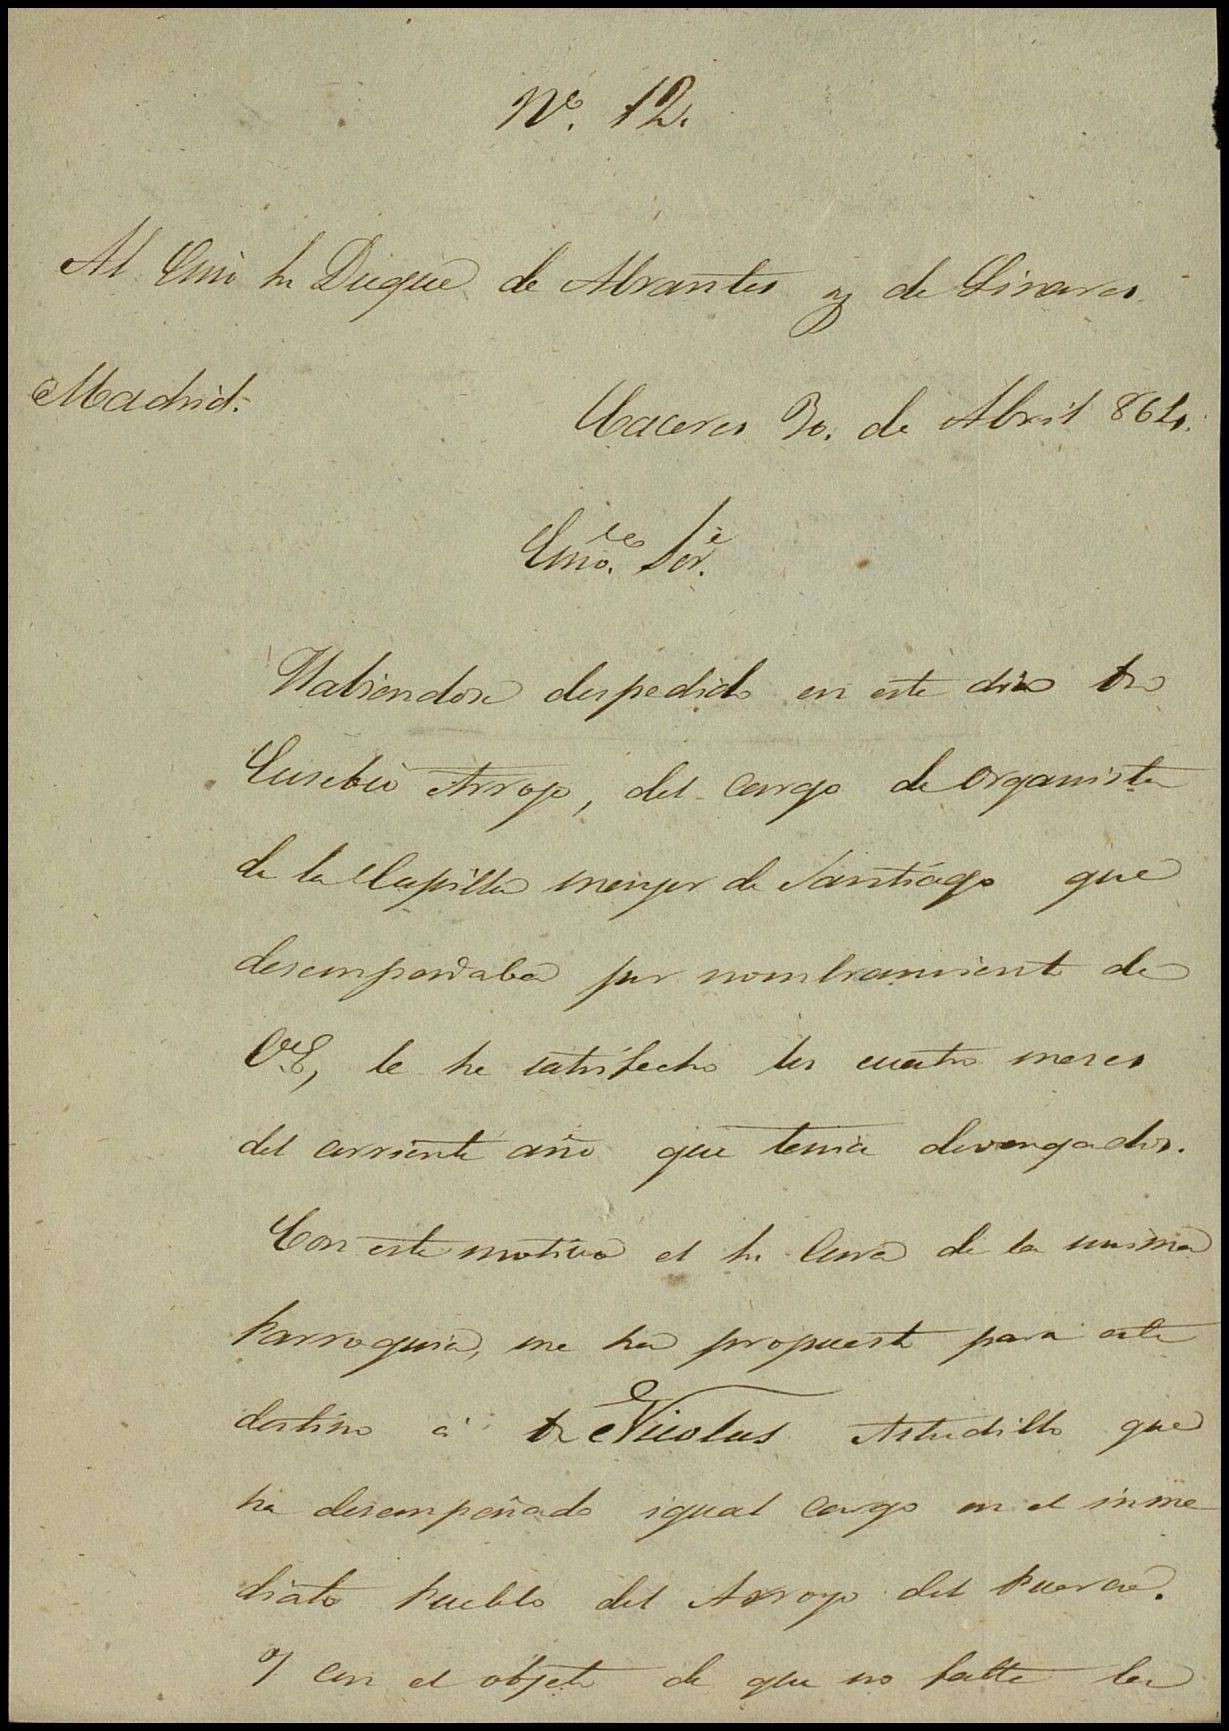 Nº. 12.
Al Emo Sr Duque de Abrantes y de Linares.
Madrid.
Caceres 30. de Abril 864.
Emo. Sor.
Habiendose despedido en este dia Dn
Eusebio Arroyo, del cargo de organista
de la Capilla mayor de Santiago que
desempeñaba por nombramiento de
V.E, le he satisfecho los cuatro meses
del corriente año que tenia devengados.
Con este motivo el Sr Cura de la misma
Parroquia, me ha propuesto para este
destino á Dn Nicolas Astudillo que
ha desempeñado igual cargo en el inme
diato Pueblo del Arroyo del Puerco.
Y con el objeto de que no falte la